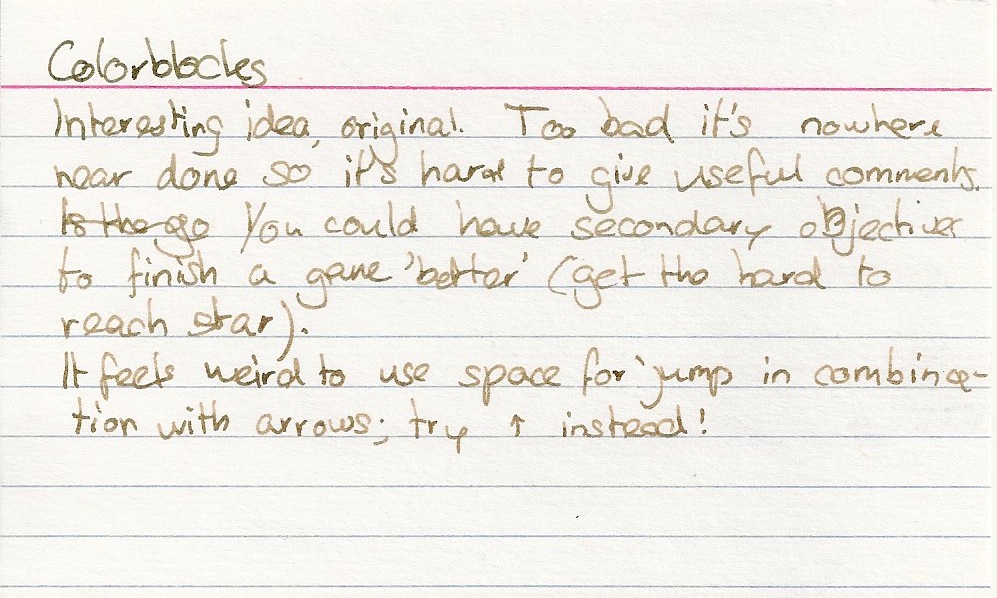 Colorblocks
Interesting idea, original. Too bad it's nowhere
near done so it's hard to give useful comments.
Is the go You could have secondary objectives
to finish a game 'better' (get the hard to
reach star).
It feels weird to use space for jump in combina-
tion with arrows; try ↑ instead!